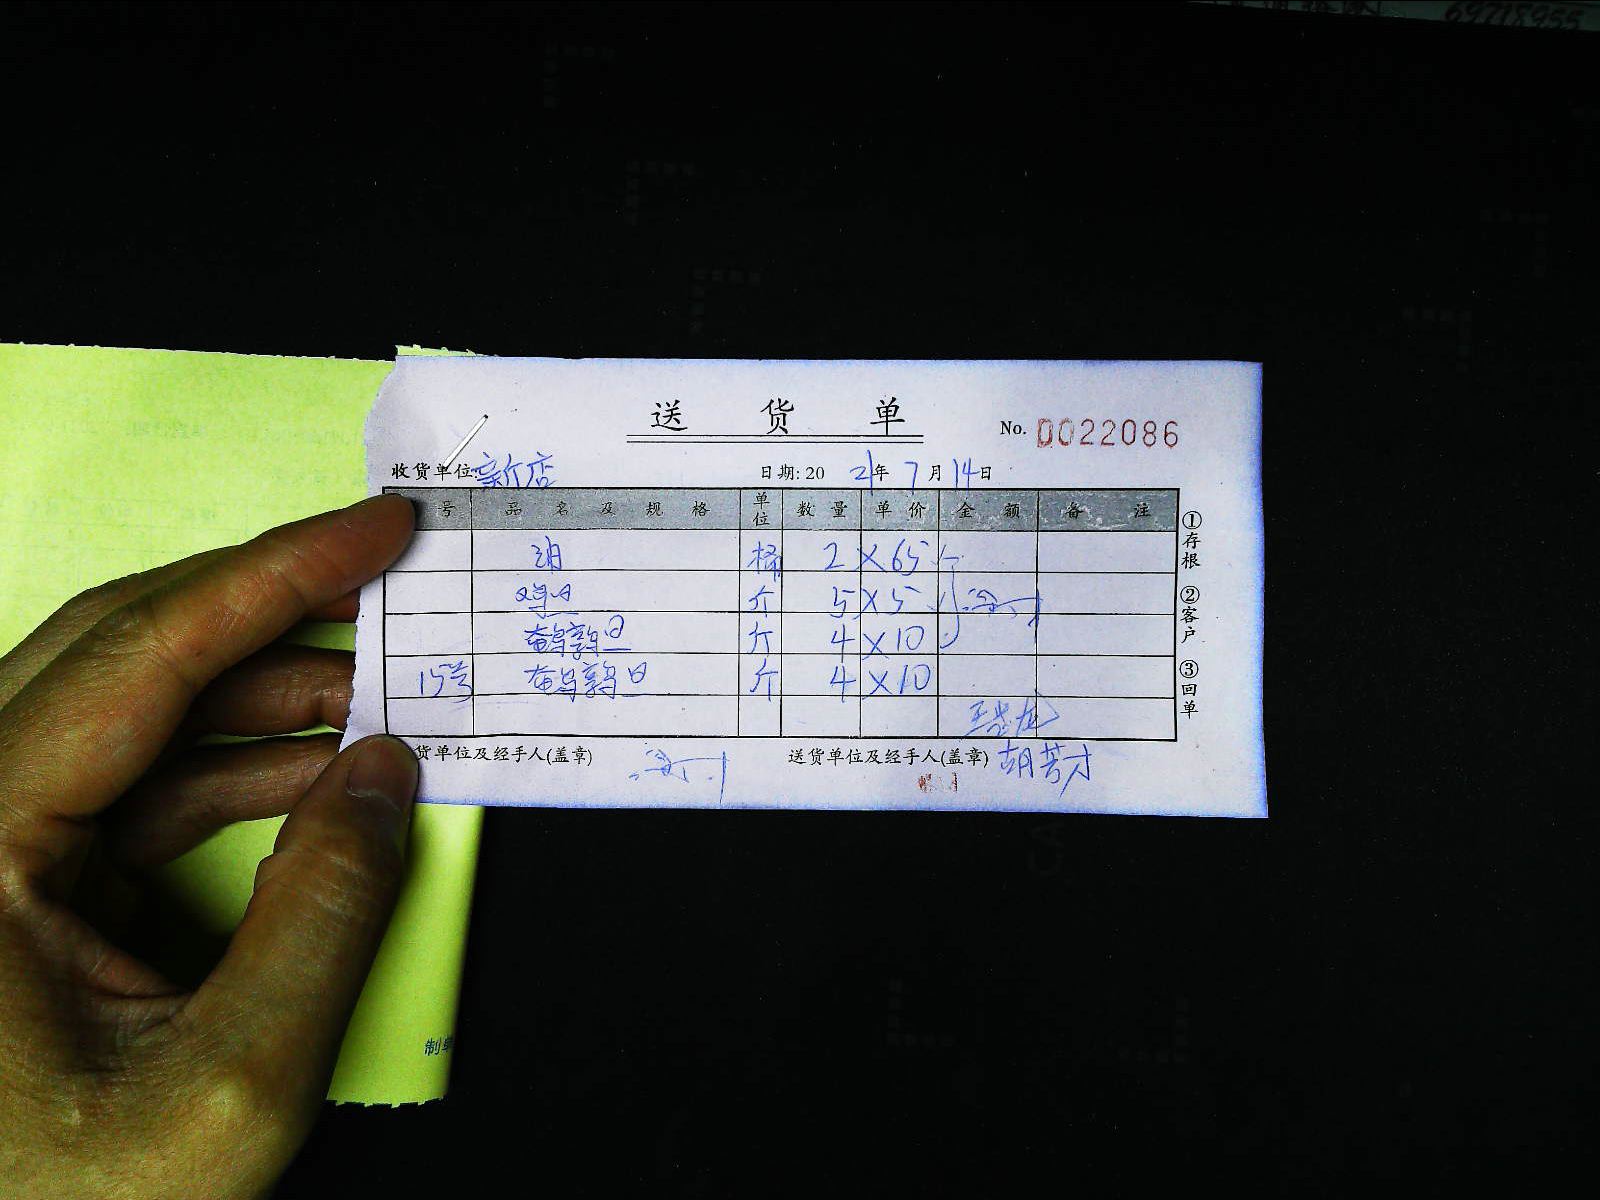 69718955
送 货 单
No. 0022086
收货单位: 新店
日期: 20 21年 7月 14日
号 品 名 及 规 格 单位 数 量 单 价 金 额 备 注
油 桶 2 × 65
鸡旦 斤 5 × 5
鹌鹑旦 斤 4 × 10
15号 鹌鹑旦 斤 4 × 10
货单位及经手人(盖章) 送货单位及经手人(盖章) 胡芳才
①存根 ②客户 ③回单
制单